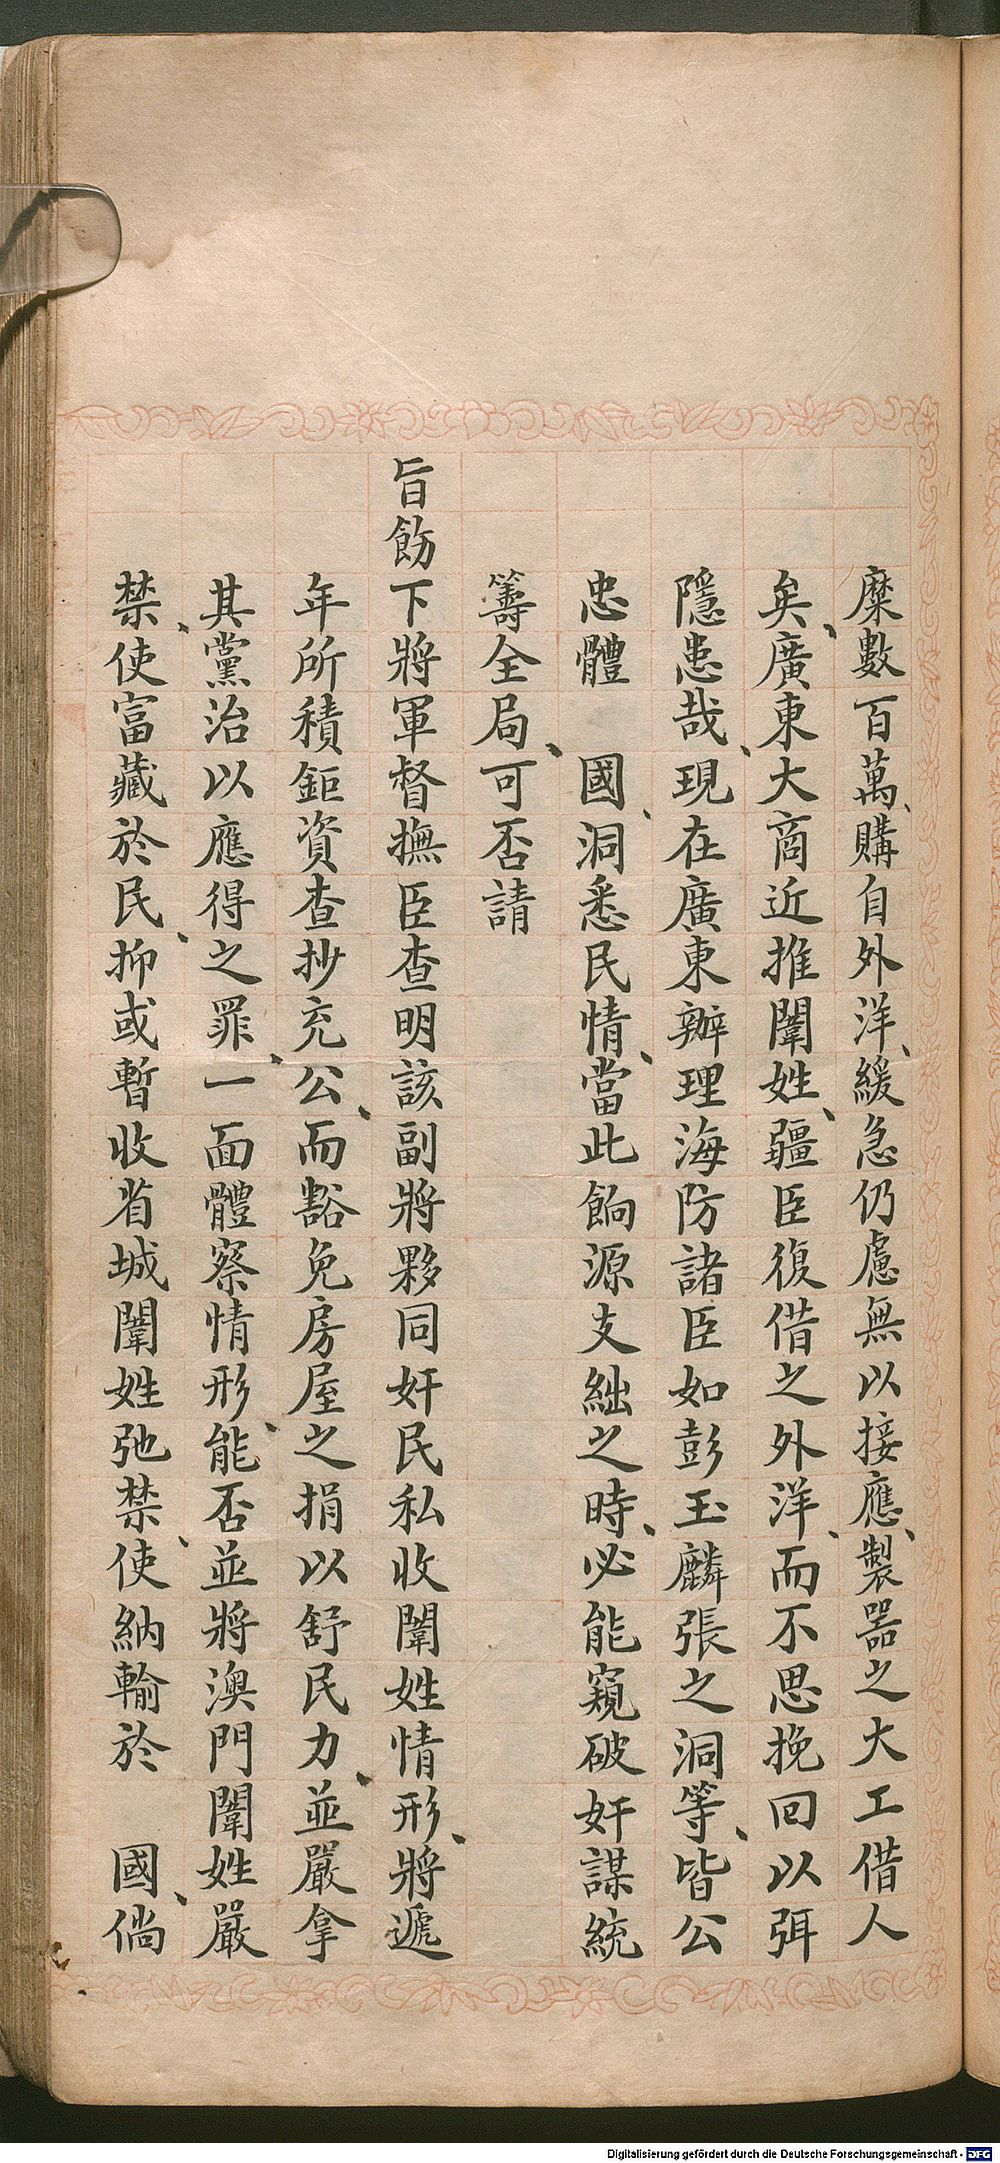 糜數百萬、購自外洋、緩急仍慮無以接應、製器之大工借人
矣、廣東大商近推闈姓、疆臣復借之外洋、而不思挽回以弭
隱患哉、現在廣東辦理海防諸臣如彭玉麟張之洞等、皆公
忠體　國、洞悉民情、當此餉源支絀之時、必能窺破奸謀統
籌全局、可否請
旨飭下將軍督撫臣查明該副將夥同奸民私收闈姓情形、將遞
年所積鉅資查抄充公、而豁免房屋之捐以舒民力、並嚴拿
其黨治以應得之罪、一面體察情形、能否並將澳門闈姓嚴
禁、使富藏於民、抑或暫收省城闈姓弛禁、使納輸於　國、倘
Digitalisierung gefördert durch die Deutsche Forschungsgemeinschaft - DFG